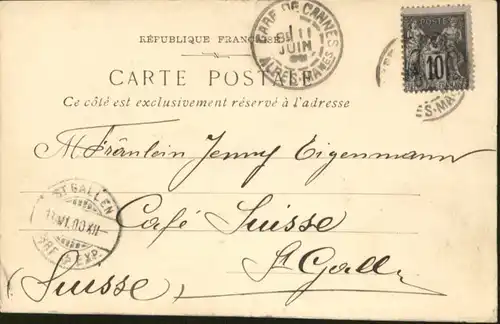 RÉPUBLIQUE FRANÇAISE
GARE DE CANNES
11
JUIN
ALPES-MARMES
POSTE
10
CARTE POSTALE
Ce côté est exclusivement réservé à l'adresse
Fräulein Jenny Eigenmann
ST GALLEN
VI.00.XII-
BRF. EXP.
Café Suisse
St Gall
(Suisse)